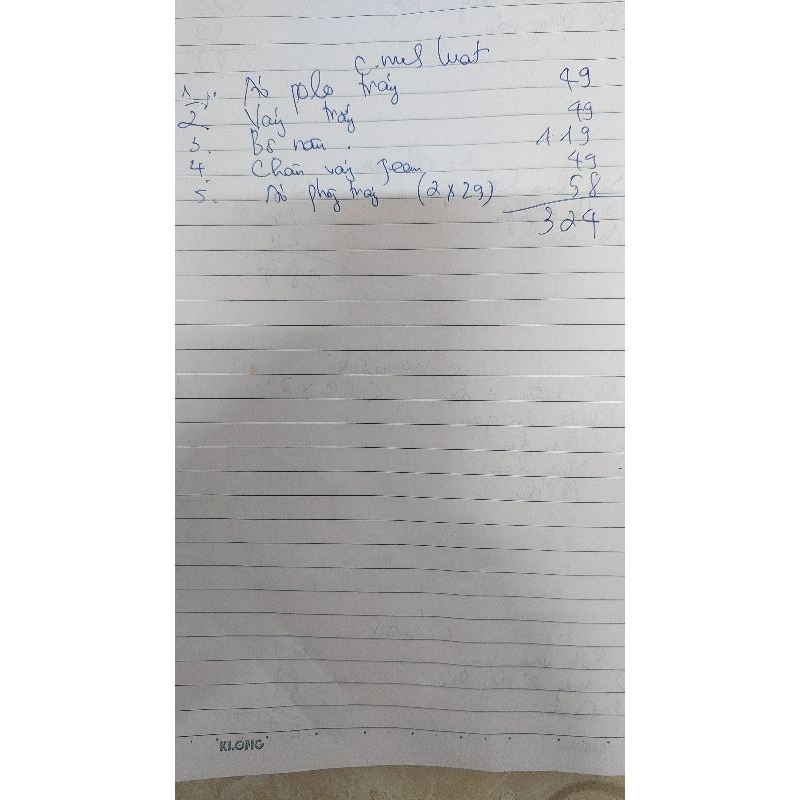 1. Áo polo trắng 49
2. Váy trắng 49
3. Bò nâu. 119
4. Chân váy Jean 49
5. Áo phông trắng (2 x 29) 58
324
KLONG